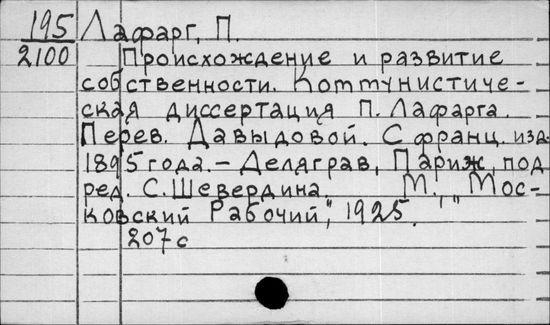 195 Лафарг, П.
2100 Происхождение и развитие
собственности. Коммунистиче-
ская диссертация П. Лафарга.
Перев. Давыдовой. С франц. изд.
1895 года. – Делаграв, Париж, под
ред. С. Шевердина. М., "Мос-
ковский Рабочий", 1925.
207 с